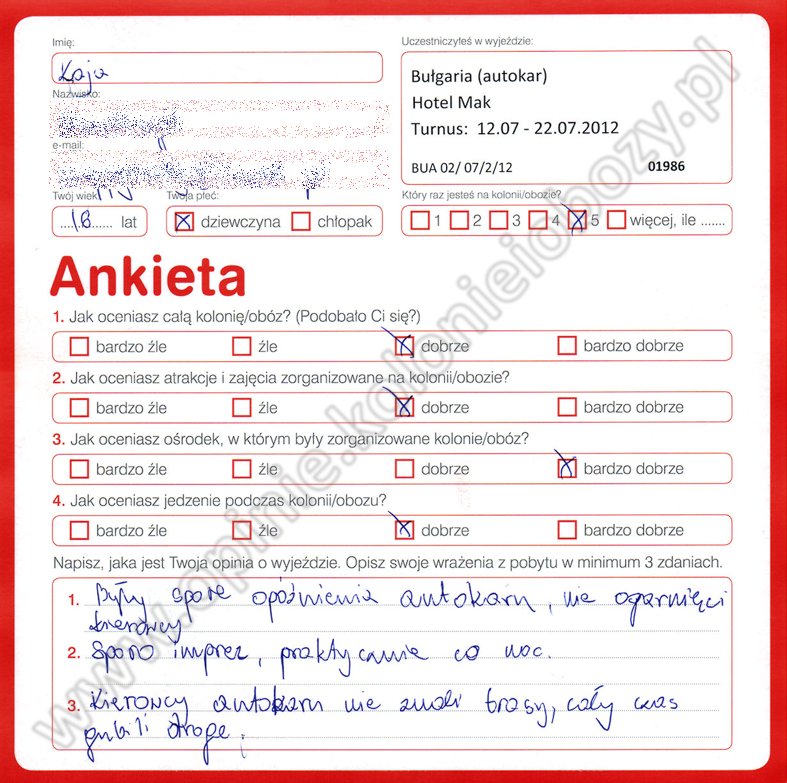 Imię:
Kaja
Nazwisko:
e-mail:
Twój wiek:
18 lat
Twoja płeć:
dziewczyna chłopak
Uczestniczyłeś w wyjeździe:
Bułgaria (autokar)
Hotel Mak
Turnus: 12.07 - 22.07.2012
BUA 02/ 07/2/12 01986
Który raz jesteś na kolonii/obozie?
1 2 3 4 5 więcej, ile .......
Ankieta
1. Jak oceniasz całą kolonię/obóz? (Podobało Ci się?)
bardzo źle źle dobrze bardzo dobrze
2. Jak oceniasz atrakcje i zajęcia zorganizowane na kolonii/obozie?
bardzo źle źle dobrze bardzo dobrze
3. Jak oceniasz ośrodek, w którym były zorganizowane kolonie/obóz?
bardzo źle źle dobrze bardzo dobrze
4. Jak oceniasz jedzenie podczas kolonii/obozu?
bardzo źle źle dobrze bardzo dobrze
Napisz, jaka jest Twoja opinia o wyjeździe. Opisz swoje wrażenia z pobytu w minimum 3 zdaniach.
1. Były spore opóźnienia autokaru, nie ogarnięci
kierowcy
2. Sporo imprez, praktycznie co noc.
3. Kierowcy autokaru nie znali trasy, cały czas
gubili drogę.
www.opinie.kolonieiobozy.pl